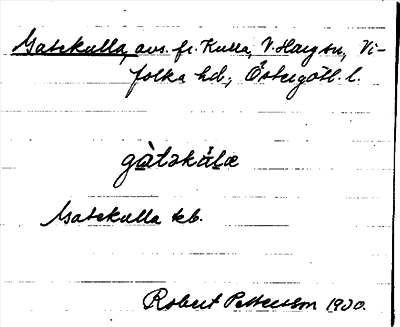 Gatekulla, avs. fr. Kulla, V. Harg sn, Vi-
folka hd., Östergötl. l.
gàtəkúlæ
Gatekulla kb.
Robert Pettersson 1930.